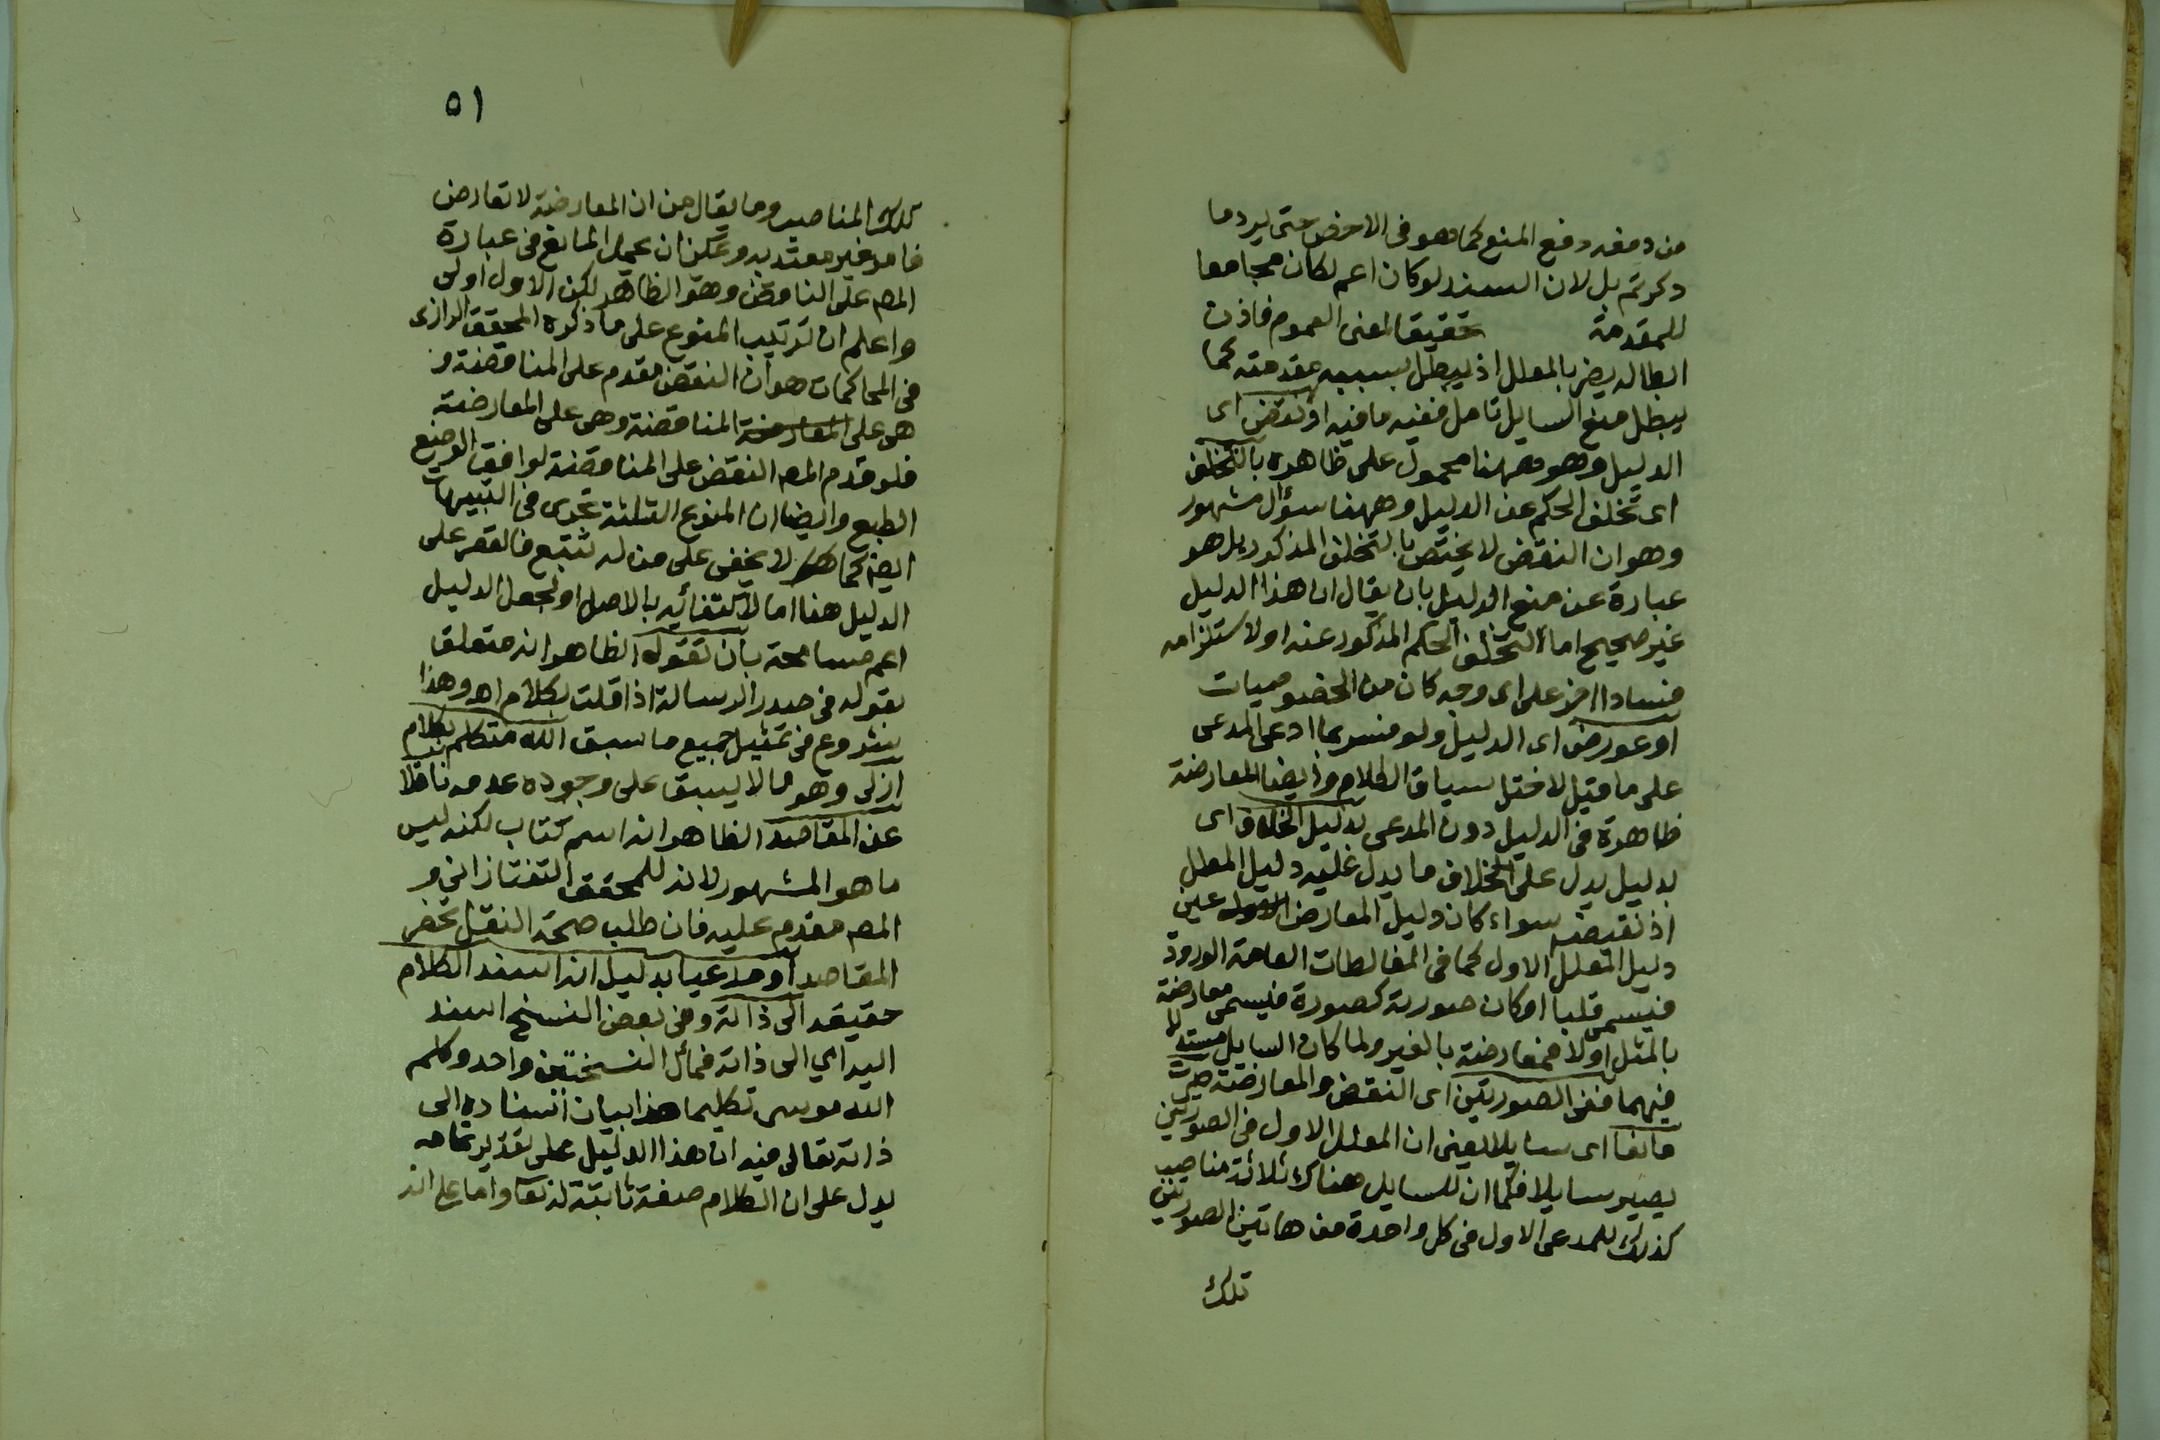 من دفعه دفع المنع كما هو فى الاخص حتى يرد ما
ذكرتم بل لان السند لو كان اعم لكان مجامعا
للمقدمة تحقيقا لمعنى العموم فاذن
ابطاله يضر بالمعلل اذ يبطل بسببه مقدمته كما
يبطل منع السايل تامل ففيه ما فيه او نقض اى
الدليل وهو ههنا محمول على ظاهره بالتخلف
اى تخلف الحكم عن الدليل وههنا سؤال مشهور
وهو ان النقض لا يختص بالتخلف المذكور بل هو
عبارة عن منع الدليل بان يقال ان هذا الدليل
غير صحيح اما لتخلف الحكم المذكور عنه او لاستلزامه
فسادا اخر على اى وجه كان من الخصوصيات
او عورض اى الدليل ولو فسر بما ادعى المدعى
على ما قيل لاختل سياق الكلام وايضا المعارضة
ظاهرة فى الدليل دون المدعى بدليل الخلاف اى
بدليل يدل على الخلاف ما يدل عليه دليل المعلل
اذ نقيضه سواء كان دليل المعارض الاول عين
دليل المعلل الاول كما فى المغالطات العامة الورود
فيسمى قلبا او كان صورته كصورة فيسمى معارضة
بالمثل اولا فمعارضة بالغير ولما كان السايل مستدلا
فيهما ففى الصورتين اى النقض والمعارضة صرت
مانعا اى سايلا يعنى ان المعلل الاول فى الصورتين
يصير سايلا فكما ان للسايل هناك ثلاثة مناصب
كذلك للمدعى الاول فى كل واحدة من هاتين الصورتين
تلك
٥١
تلك المناصب وما يقال من ان المعارضة لا تعارض
فامر غير معتد به ويمكن ان يحمل المانع فى عبارة
المص على الناقض وهو الظاهر لكن الاول اولى
واعلم ان ترتيب المنوع على ما ذكره المحقق الرازى
فى المحاكمات هو ان النقض مقدم على المناقضة و
هى على المعارضة المناقضة وهى على المعارضة
فلو قدم المص النقض على المناقضة لوافق الوضع
الطبع وايضا ان المنوع الثلثة تجرى فى التنبيهات
ايضا كما هو لا يخفى على من له تتبع فالقصر على
الدليل هنا اما لاكتفائه بالاصل او لجعل الدليل
اعم مسامحة بان تقول الظاهر انه متعلق
بقوله فى صدر الرسالة اذا قلت بكلام اه وهذا
شروع فى تمثيل جميع ما سبق الله متكلم بكلام
ازلى وهو ما لا يسبق على وجوده عدمه ناقلا
عن المقاصد الظاهر انه اسم كتاب لكنه ليس
ما هو المشهور لانه للمحقق التفتازانى و
المص مقدم عليه فان طلب صحة النقل تحضر
المقاصد او مدعيا بدليل انه اسند الكلام
حقيقة الى ذاته وفى بعض النسخ اسند
اليه اى الى ذاته فمآل النسختين واحد وكلم
الله موسى تكليما هذا بيان اسناده الى
ذاته تعالى فيه ان هذا الدليل على تقدير تمامه
يدل على ان الكلام صفة ثابتة له تعا واما على انه